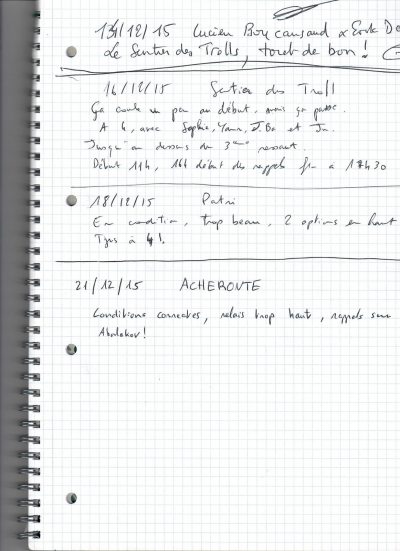 13/12/15 Lucien Boucansaud & Erik De
Le Sentier des Trolls, tout de bon!
16/12/15 Sentier des Troll
Ça coule un peu au début, mais ça passe.
A 4, avec Sophie, Yann, J.Ba et Ju.
Jusqu'au dessus du 3ème ressaut.
Début 11h, 16h début des rappels fin à 17h30
18/12/15 Patri
En condition, trop beau, 2 options en haut
Tjrs à 4!
21/12/15 ACHEROUTE
Conditions correctes, relais trop haut, rappels sur
Abalakov!